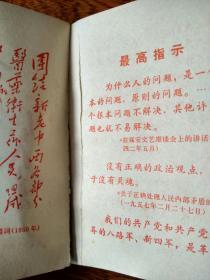 团结新老中西各部分
医药卫生人员
题词(1950年)
最高指示
为什么人的问题，是一
本的问题，原则的问题。…
个根本问题不解决，其他许
题也就不易解决。
在延安文艺座谈会上的讲话
四二年五月）
没有正确的政治观点，
于没有灵魂。
关于正确处理人民内部矛盾的
（一九五七年二月二十七日）
我们的共产党和共产党
导的八路军、新四军，是革